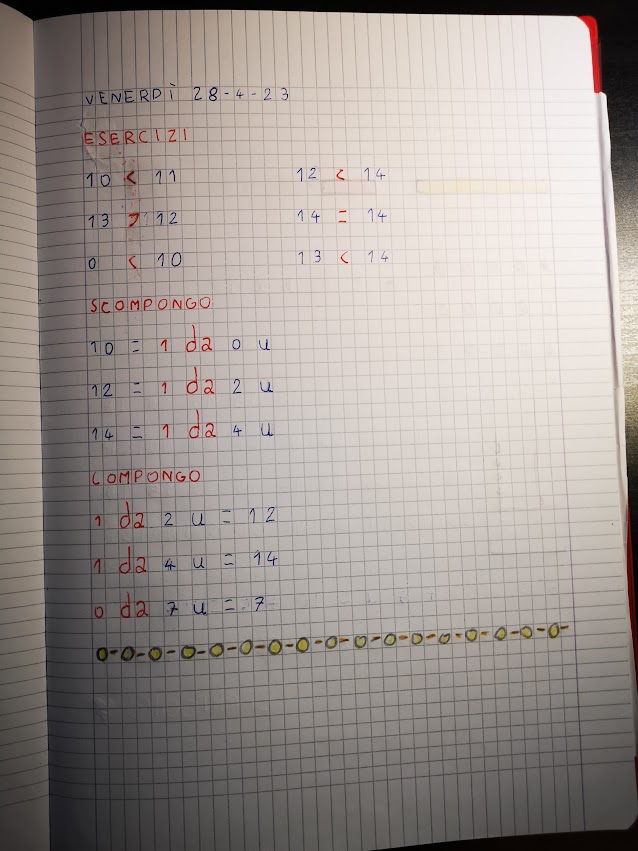 VENERDÌ 28-4-23
ESERCIZI
10 < 11 12 < 14
13 > 12 14 = 14
0 < 10 13 < 14
SCOMPONGO
10 = 1 da 0 u
12 = 1 da 2 u
14 = 1 da 4 u
COMPONGO
1 da 2 u = 12
1 da 4 u = 14
0 da 7 u = 7